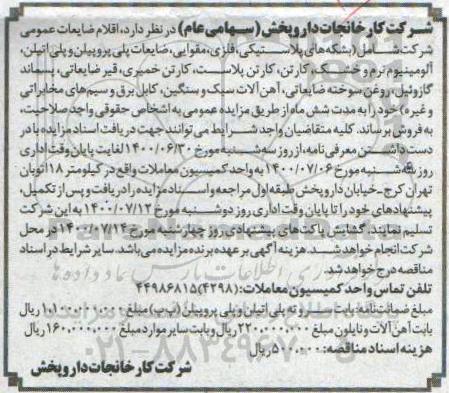 شرکت کارخانجات داروپخش (سهامی عام) در نظر دارد، اقلام ضایعات عمومی
شرکت شامل (بشکه‌های پلاستیکی، فلزی، مقوایی، ضایعات پلی پروپیلن و پلی اتیلن،
آلومینیوم نرم و خشک، کارتن، کارتن پلاست، کارتن خمیری، قیر ضایعاتی، پسماند
گازوئیل، روغن سوخته ضایعاتی، آهن آلات سبک و سنگین، کابل برق و سیم‌های مخابراتی
و غیره) خود را به مدت شش ماه از طریق مزایده عمومی به اشخاص حقوقی واجد صلاحیت
به فروش برساند. کلیه متقاضیان واجد شرایط می توانند جهت دریافت اسناد مزایده با در
دست داشتن معرفی نامه، از روز سه شنبه مورخ ۱۴۰۰/۰۶/۳۰ لغایت پایان وقت اداری
روز سه شنبه مورخ ۱۴۰۰/۰۷/۰۶ به واحد کمیسیون معاملات واقع در کیلومتر ۱۸ اتوبان
تهران کرج - خیابان داروپخش طبقه اول مراجعه و اسناد مزایده را دریافت و پس از تکمیل،
پیشنهادهای خود را تا پایان وقت اداری روز دوشنبه مورخ ۱۴۰۰/۰۷/۱۲ به این شرکت
تسلیم نمایند. گشایش پاکت‌های پیشنهادی روز چهارشنبه مورخ ۱۴۰۰/۰۷/۱۴ در محل
شرکت انجام خواهد شد. هزینه آگهی بر عهده برنده مزایده می‌باشد. سایر شرایط در اسناد
مناقصه درج خواهد شد.
تلفن تماس واحد کمیسیون معاملات: (۴۲۹۸) ۴۴۹۸۶۸۱۵
مبلغ ضمانت‌نامه: بابت سه رو ته پلی اتیلن و پلی پروپیلن (پ پ) مبلغ ۱،۱۰۰،۰۰۰،۰۰۰ ریال
بابت آهن آلات و نایلون مبلغ ۲۲۰،۰۰۰،۰۰۰ ریال و بابت سایر موارد مبلغ ۱۶۰،۰۰۰،۰۰۰ ریال
هزینه اسناد مناقصه: ۵۰۰،۰۰۰ ریال
شرکت کارخانجات داروپخش
۰۲۱-۸۸۳۴۹۶۷۰